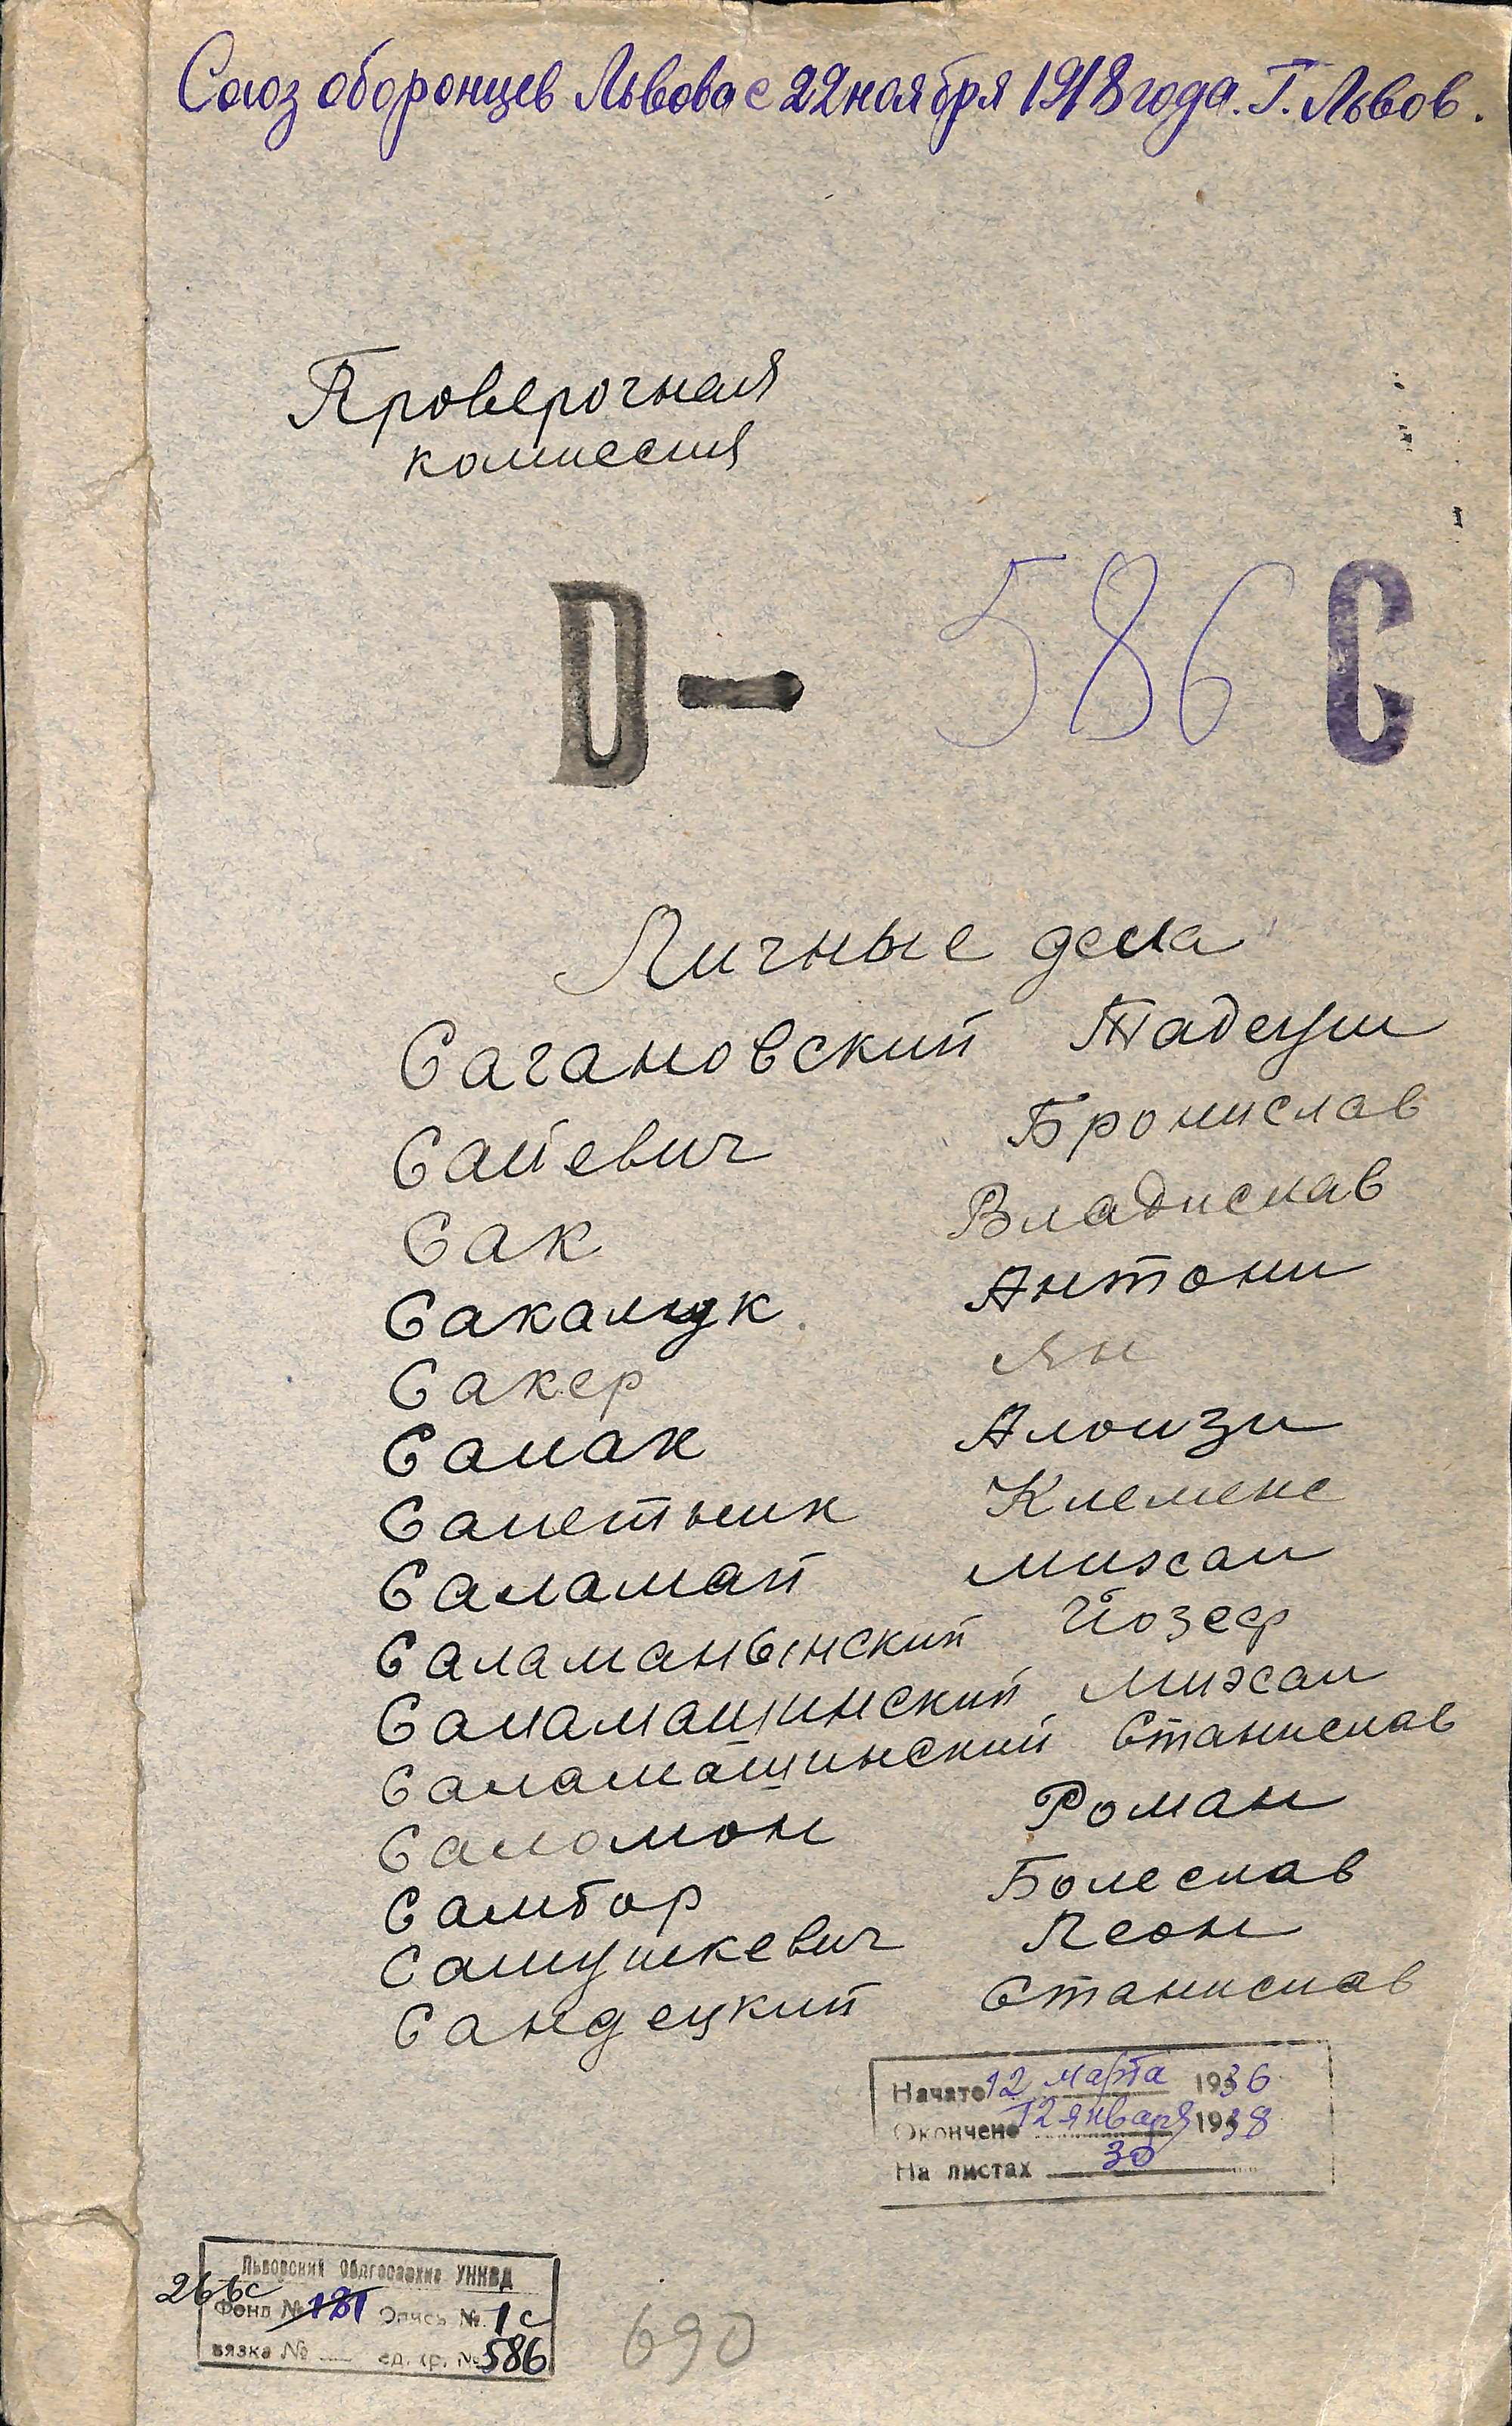 Союз оборонцев Львова с 22 ноября 1918 года. Г. Львов.
Проверочная
комиссия
D — 586 С
Личные дела
Сагановский Тадеуш
Сайевич Бронислав
Сак Владислав
Сакалюк Антони
Сакер Ян
Салак Алоизи
Салетник Клеменс
Саламай Михал
Саламанынский Йозеф
Саламащинский Михал
Саламащинский Станислав
Саломон Роман
Самбор Болеслав
Самушкевич Леон
Сандецкий Станислав
Начато 12 марта 1936
Окончено 12 января 1938
На листах 30
Львовский Облгосархив УНКВД
266с
Фонд № 131 Опись № 1с
вязка № ед. хр. № 586
690